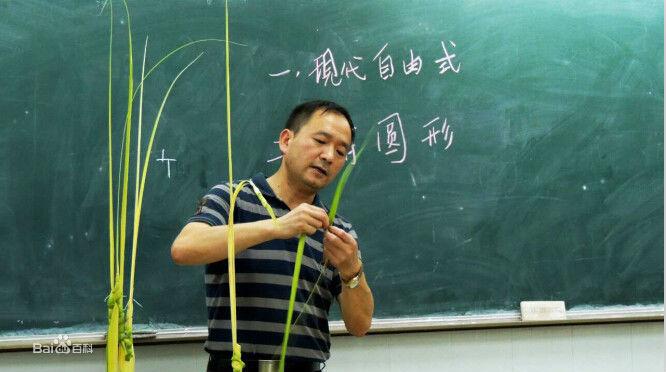 一.現代自由式
圆形
Bai百科